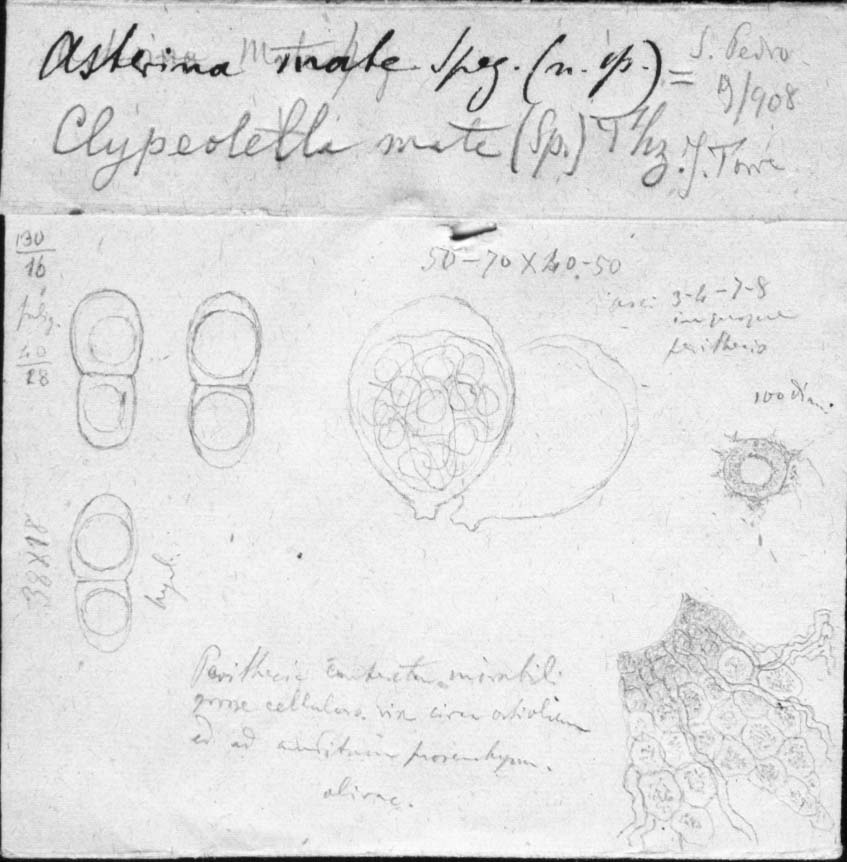 Asterina mate Speg. (n. sp.) =
S. Pedro
9/908
Clypeolella mate (Sp.) Thz.
130
16
40
28
50-70 X 40-50
asci 3-4-7-8
perithecio
100 diam.
38 X 18
hyal.
Perithecia contextu mirabili
grosse celluloso vix circa ostiolum
et ad ambitum prosenchym.
olivac.